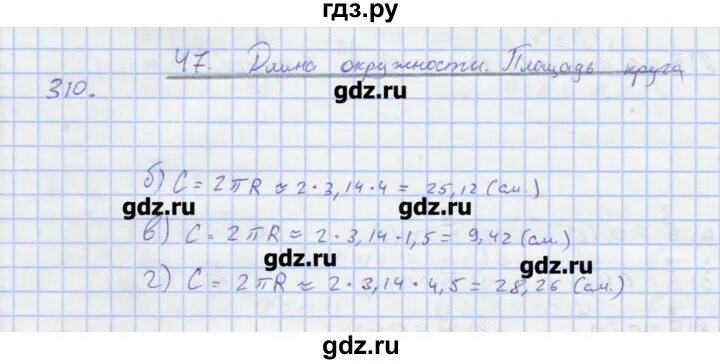 гдз.ру
47. Длина окружности. Площадь круга
310.
gdz.ru
б) C = 2πR ≈ 2·3,14·4 = 25,12 (см.)
gdz.ru gdz.ru
в) C = 2πR ≈ 2·3,14·1,5 = 9,42 (см.)
gdz.ru gdz.ru
г) C = 2πR ≈ 2·3,14·4,5 = 28,26 (см.)
gdz.ru